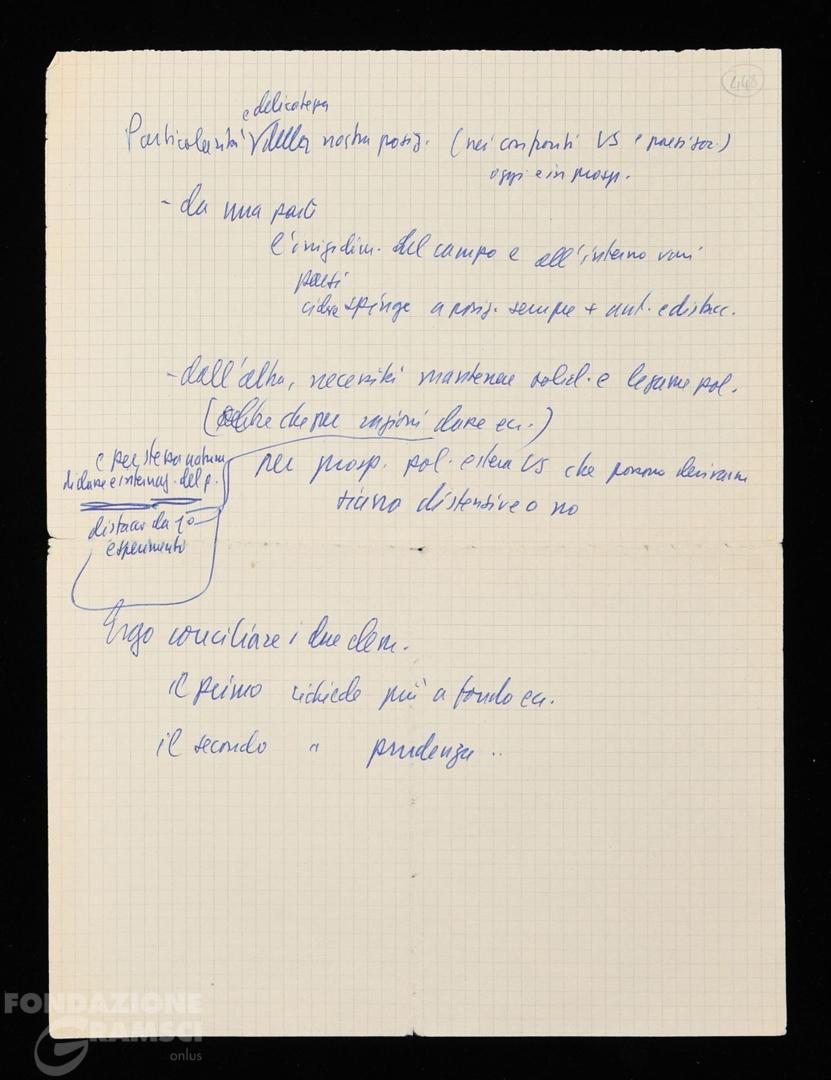 448
e delicatezza
Particolarità della nostra posiz. (nei confronti US e paesi soc.)
oggi e in prosp.
- da una parte
l'irrigidim. del campo e all'interno vari
paesi
ci spinge a posiz. sempre + aut. e distacc.
- dall'altra, necessità mantenere solid. e legame pol.
(oltre che per ragioni classe ecc.)
e per stessa natura
di classe e internaz. del p.
per prosp. pol. estera US che possono derivarne
siano distensive o no
distacco da 1º
esperimento
Ergo conciliare i due elem.
il primo richiede più a fondo ecc.
il secondo " prudenza ..
FONDAZIONE
GRAMSCI
onlus